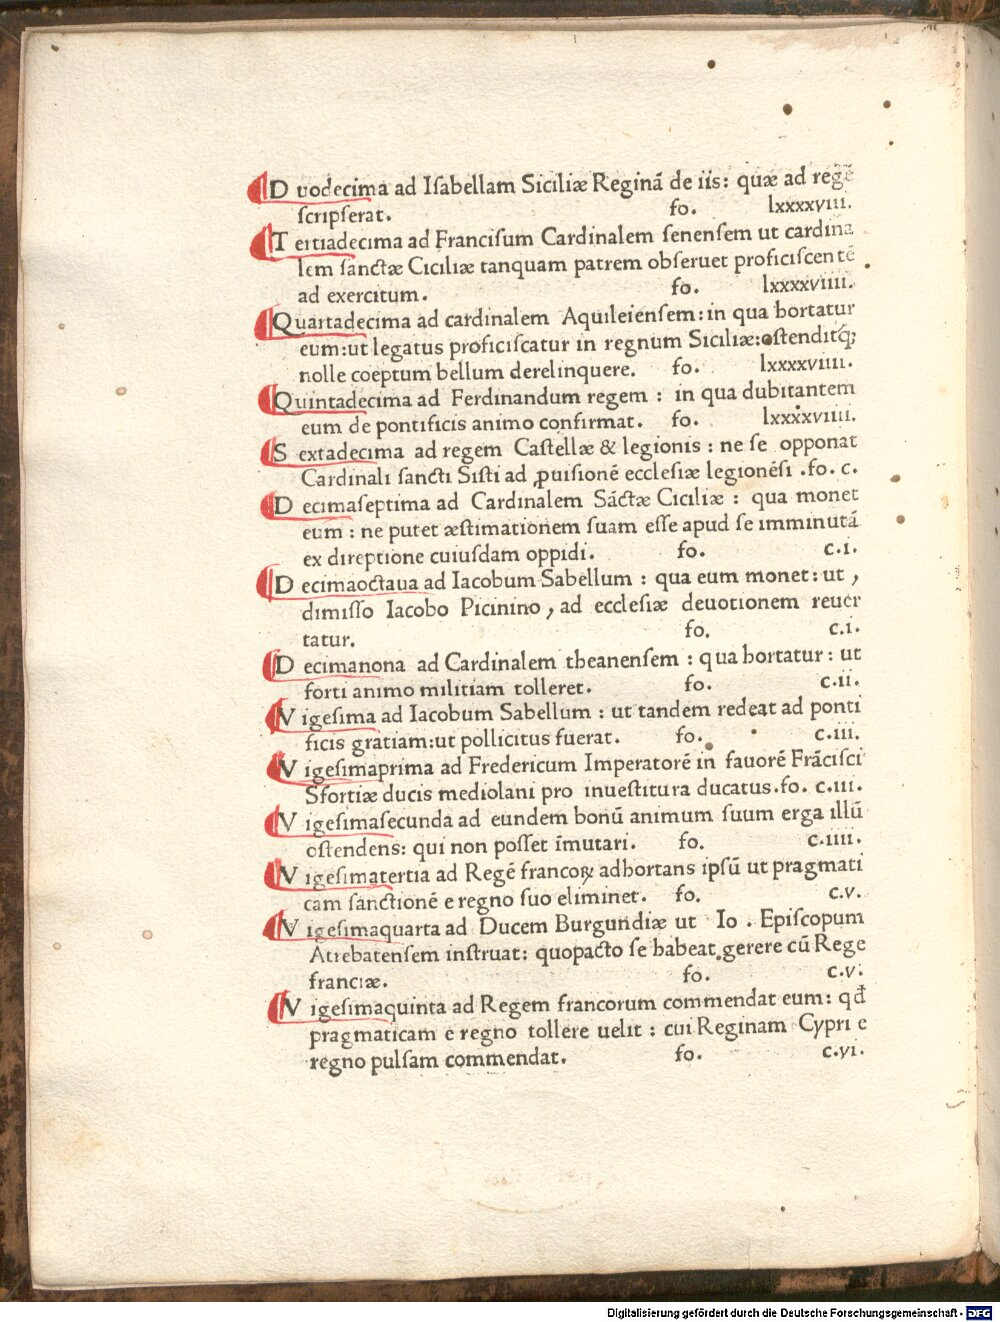 Duodecima ad Isabellam Siciliæ Reginā de iis: quæ ad regē
scripserat. fo. lxxxxviii.
Tertiadecima ad Francisum Cardinalem senensem ut cardina
lem sanctæ Ciciliæ tanquam patrem obseruet proficiscentē
ad exercitum. fo. lxxxxviiii.
Quartadecima ad cardinalem Aquileiensem: in qua hortatur
eum: ut legatus proficiscatur in regnum Siciliæ: ostenditq;
nolle coeptum bellum derelinquere. fo. lxxxxviiii.
Quintadecima ad Ferdinandum regem : in qua dubitantem
eum de pontificis animo confirmat. fo. lxxxxviiii.
Sextadecima ad regem Castellæ & legionis : ne se opponat
Cardinali sancti Sisti ad ꝓuisionē ecclesiæ legionēsi .fo. c.
Decimaseptima ad Cardinalem Sāctæ Ciciliæ : qua monet
eum : ne putet æstimationem suam esse apud se imminutā
ex direptione cuiusdam oppidi. fo. c.i.
Decimaoctaua ad Iacobum Sabellum : qua eum monet: ut ,
dimisso Iacobo Picinino, ad ecclesiæ deuotionem reuer
tatur. fo. c.i.
Decimanona ad Cardinalem theanensem : qua hortatur: ut
forti animo militiam tolleret. fo. c.ii.
Vigesima ad Iacobum Sabellum : ut tandem redeat ad ponti
ficis gratiam: ut pollicitus fuerat. fo. c.iii.
Vigesimaprima ad Fredericum Imperatorē in fauorē Frācisci
Sfortiæ ducis mediolani pro inuestitura ducatus. fo. c.iii.
Vigesimasecunda ad eundem bonū animum suum erga illū
ostendens: qui non posset īmutari. fo. c.iiii.
Vigesimatertia ad Regē francoꝝ adhortans ipsū ut pragmati
cam sanctionē e regno suo eliminet. fo. c.v.
Vigesimaquarta ad Ducem Burgundiæ ut Io . Episcopum
Atrebatensem instruat: quopacto se habeat gerere cū Rege
franciæ. fo. c.v.
Vigesimaquinta ad Regem francorum commendat eum: qđ
pragmaticam e regno tollere uelit : cui Reginam Cypri e
regno pulsam commendat. fo. c.vi.
Digitalisierung gefördert durch die Deutsche Forschungsgemeinschaft - DFG